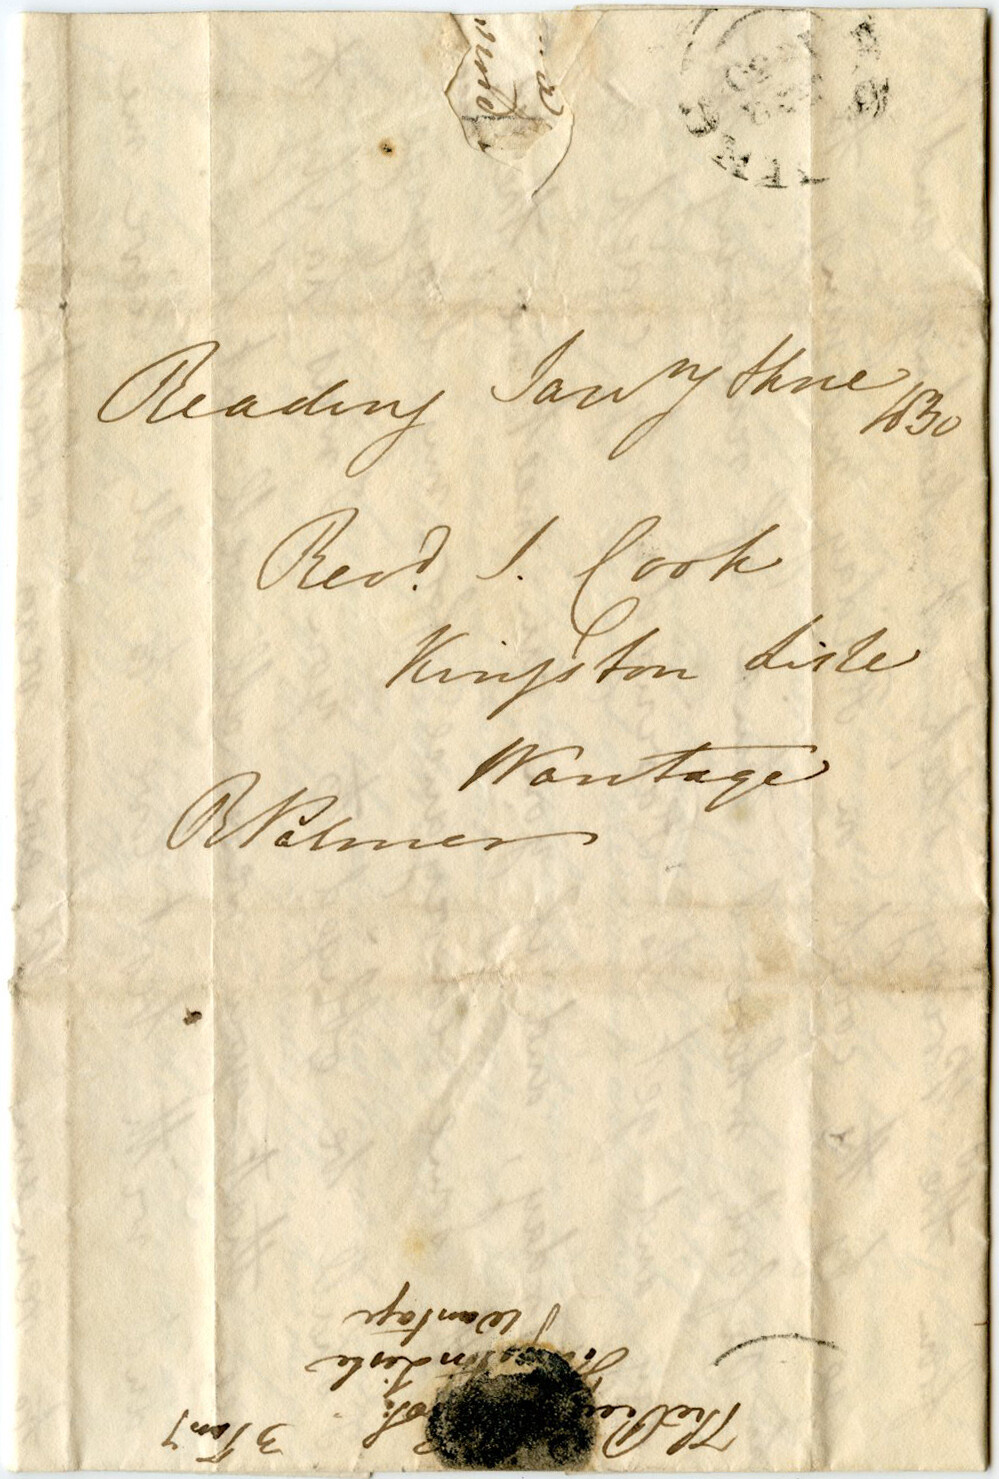 Reading Jany three 1830
Revd. J. Cook
Kingston Lisle
Wantage
R Palmer
The Rev
Kingston Lisle
Wantage
3 Jany